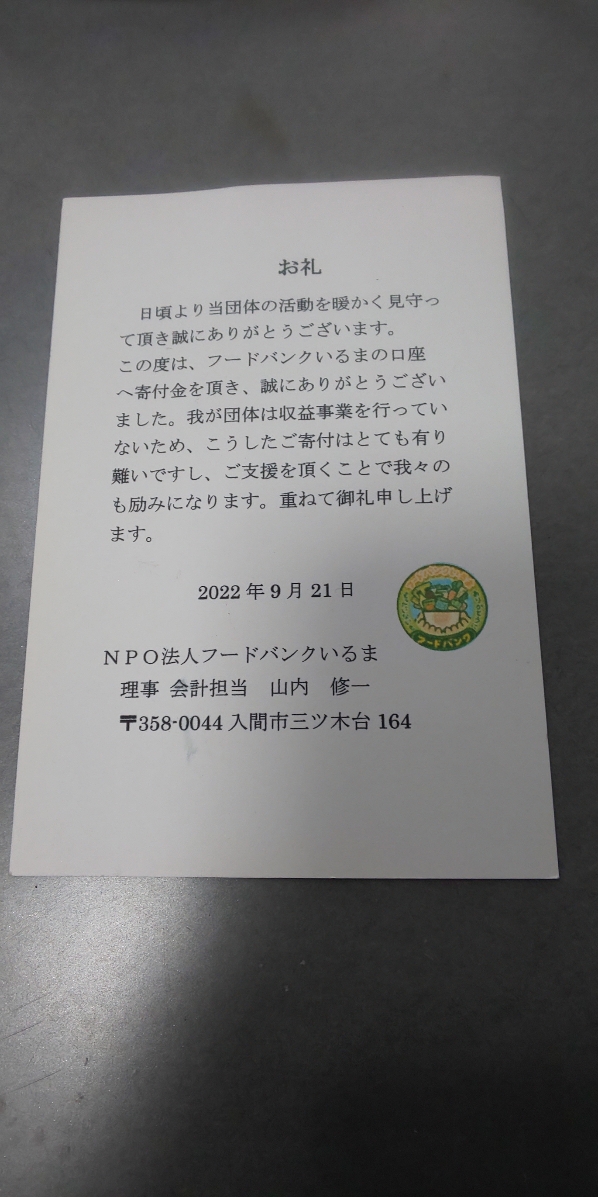 お礼
日頃より当団体の活動を暖かく見守っ
て頂き誠にありがとうございます。
この度は、フードバンクいるまの口座
へ寄付金を頂き、誠にありがとうござい
ました。我が団体は収益事業を行ってい
ないため、こうしたご寄付はとても有り
難いですし、ご支援を頂くことで我々の
も励みになります。重ねて御礼申し上げ
ます。
2022年9月21日
フードバンク
NPO法人フードバンクいるま
理事 会計担当 山内 修一
〒358-0044入間市三ツ木台164